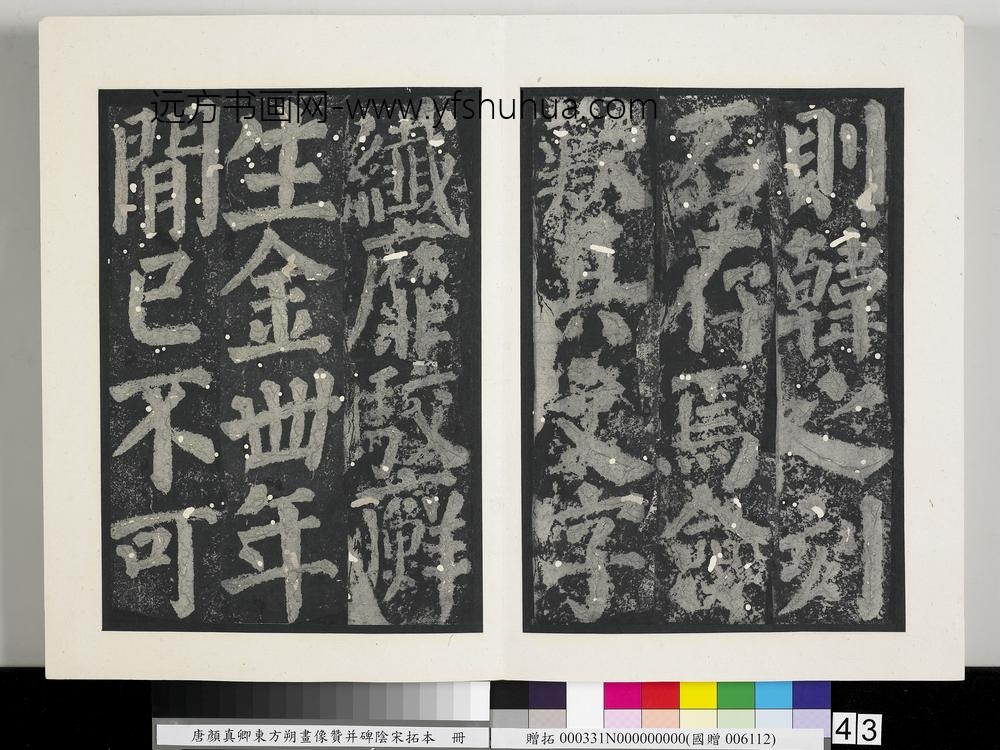 远方书画网-www.yfshuhua.com
則韓之刻
石存焉僉
歎其文字
纖靡駮蘚
生金卌年
閒已不可
唐顏真卿東方朔畫像贊并碑陰宋拓本 冊
贈拓 000331N000000000(國贈 006112)
43